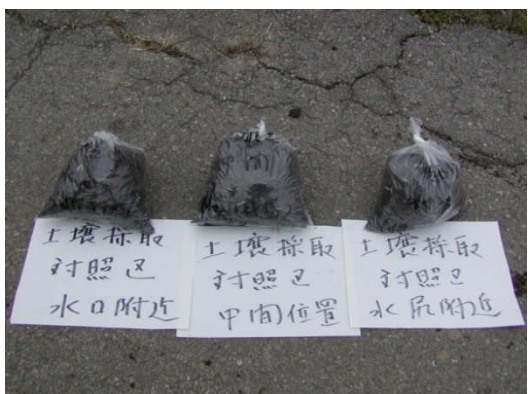 土壌採取
対照区
水口附近
土壌採取
対照区
中間位置
土壌採取
対照区
水尻附近